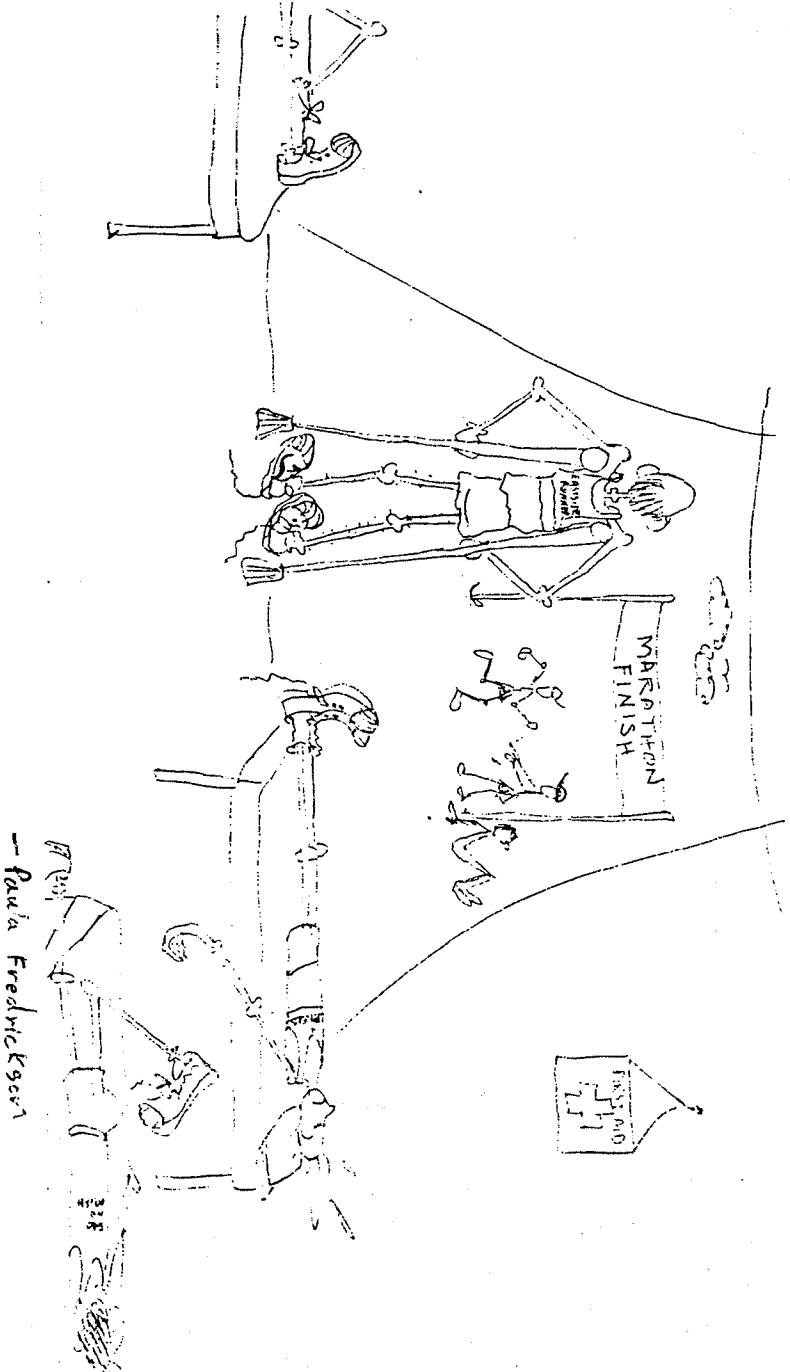 MARATHON
FINISH
FIRST AID
RUNNER
— Paula Fredrickson